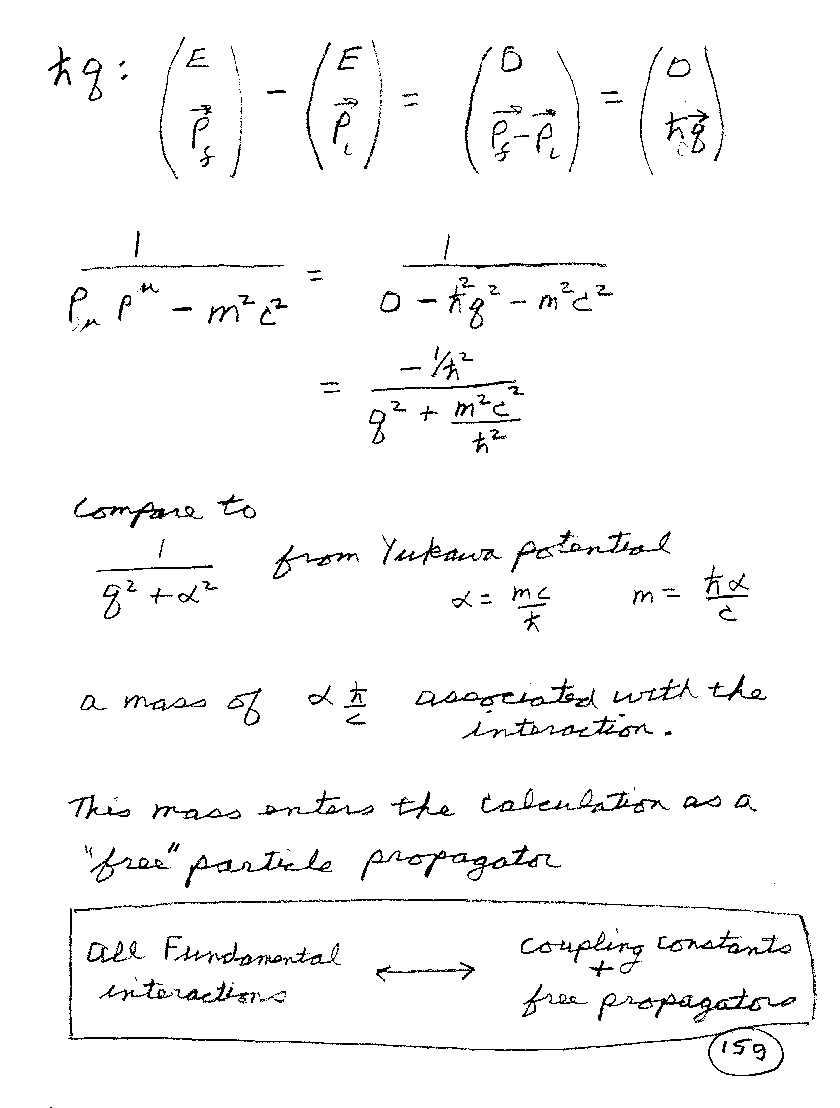 ħq: (E P⃗_f) - (E P⃗_i) = (0 P⃗_f - P⃗_i) = (0 ħq⃗)
1/(P_μ P^μ - m²c²) = 1/(0 - ħ²q² - m²c²)
= (-1/ħ²)/(q² + m²c²/ħ²)
Compare to
1/(q² + α²) from Yukawa potential
α = mc/ħ m = ħα/c
a mass of α ħ/c associated with the
interaction.
This mass enters the calculation as a
"free" particle propagator
All Fundamental interactions ⟷ coupling constants + free propagators
159